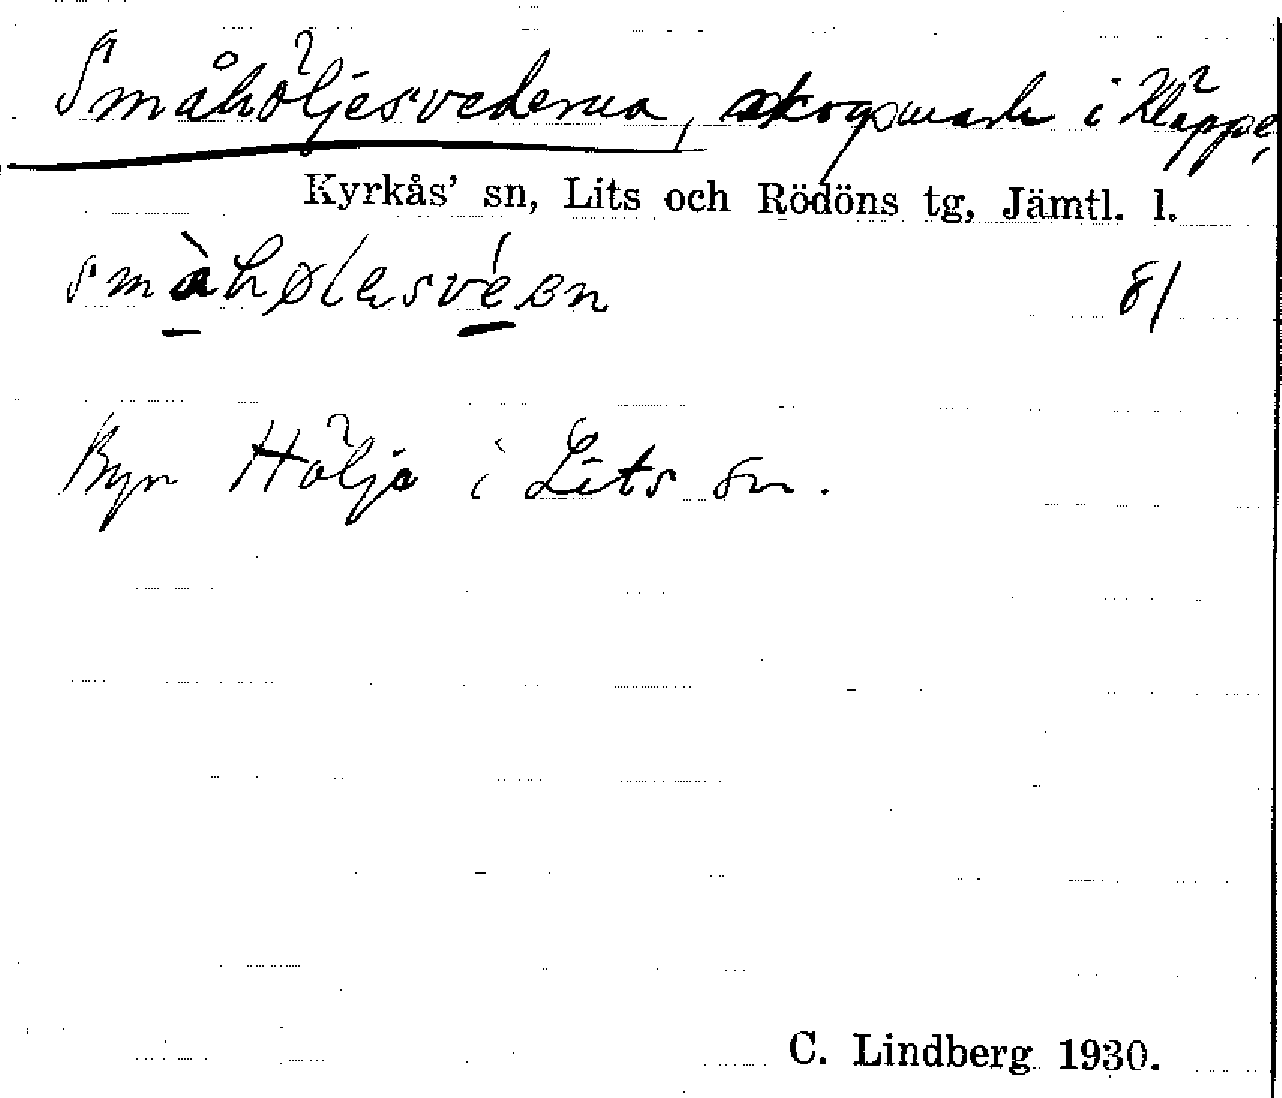 Småhöljesvederna, skogsmark i Kläppe,
Kyrkås' sn, Lits och Rödöns tg, Jämtl. l.
småhølesvéen 81
Byn Hölje i Lits sn.
C. Lindberg 1930.